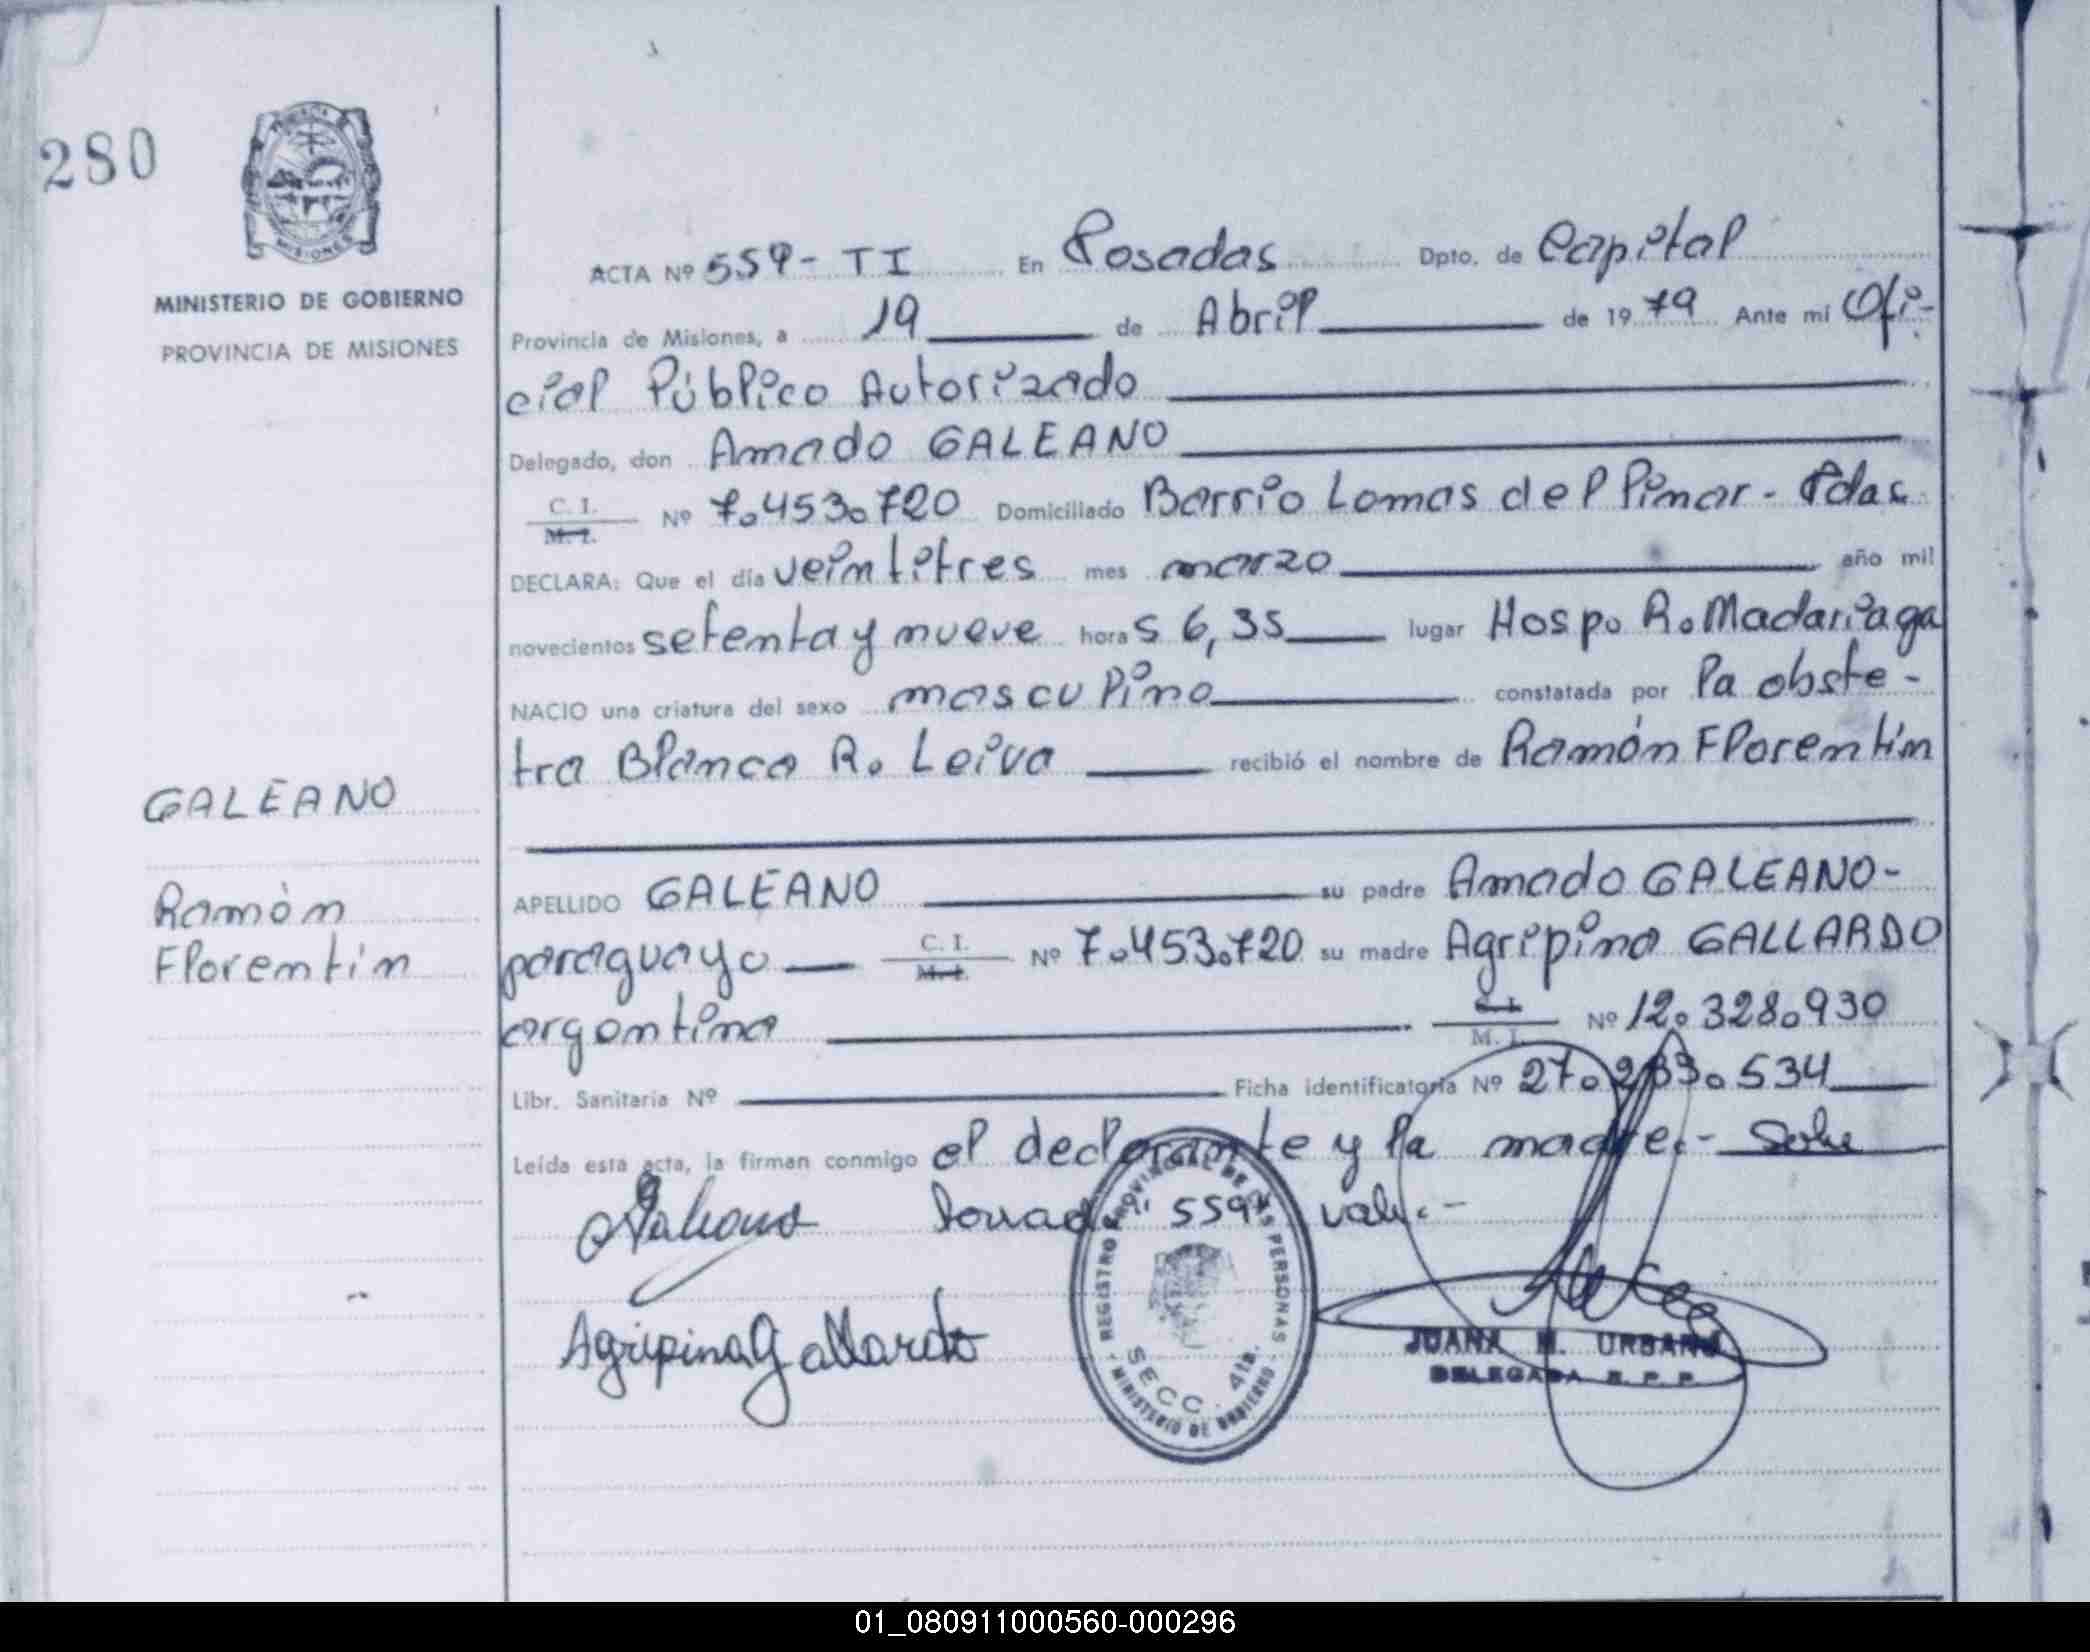 280
MISIONES
MINISTERIO DE GOBIERNO
PROVINCIA DE MISIONES
GALEANO
Ramón
Florentín
ACTA Nº 559- TI En Posadas Dpto. de Capital
Provincia de Misiones, a 19 de Abril de 1979 Ante mi Ofi-
cial Público Autorizado
Delegado, don Amado GALEANO
C. I.
M. I. Nº 7.453.720 Domiciliado Barrio Lomas del Pinar - Pdas
DECLARA: Que el día veintitres mes marzo año mil
novecientos setenta y nueve horas 6,35 lugar Hosp. R. Madariaga
NACIO una criatura del sexo masculino constatada por la obste-
tra Blanca R. Leiva recibió el nombre de Ramón Florentín
APELLIDO GALEANO su padre Amado GALEANO-
paraguayo C. I. M. I. Nº 7.453.720 su madre Agripina GALLARDO
argentina C. I. M. I. Nº 12.328.930
Libr. Sanitaria Nº Ficha identificatoria Nº 27.283.534
Leída esta acta, la firman conmigo el declarante y la madre.- Sobre
Galeano 559 vale.-
Agripina Gallardo
REGISTRO PROVINCIAL DE LAS PERSONAS
SECC. 4ta.
MINISTERIO DE GOBIERNO
JUANA M. URBANO
DELEGADA R. P. P.
01_080911000560-000296